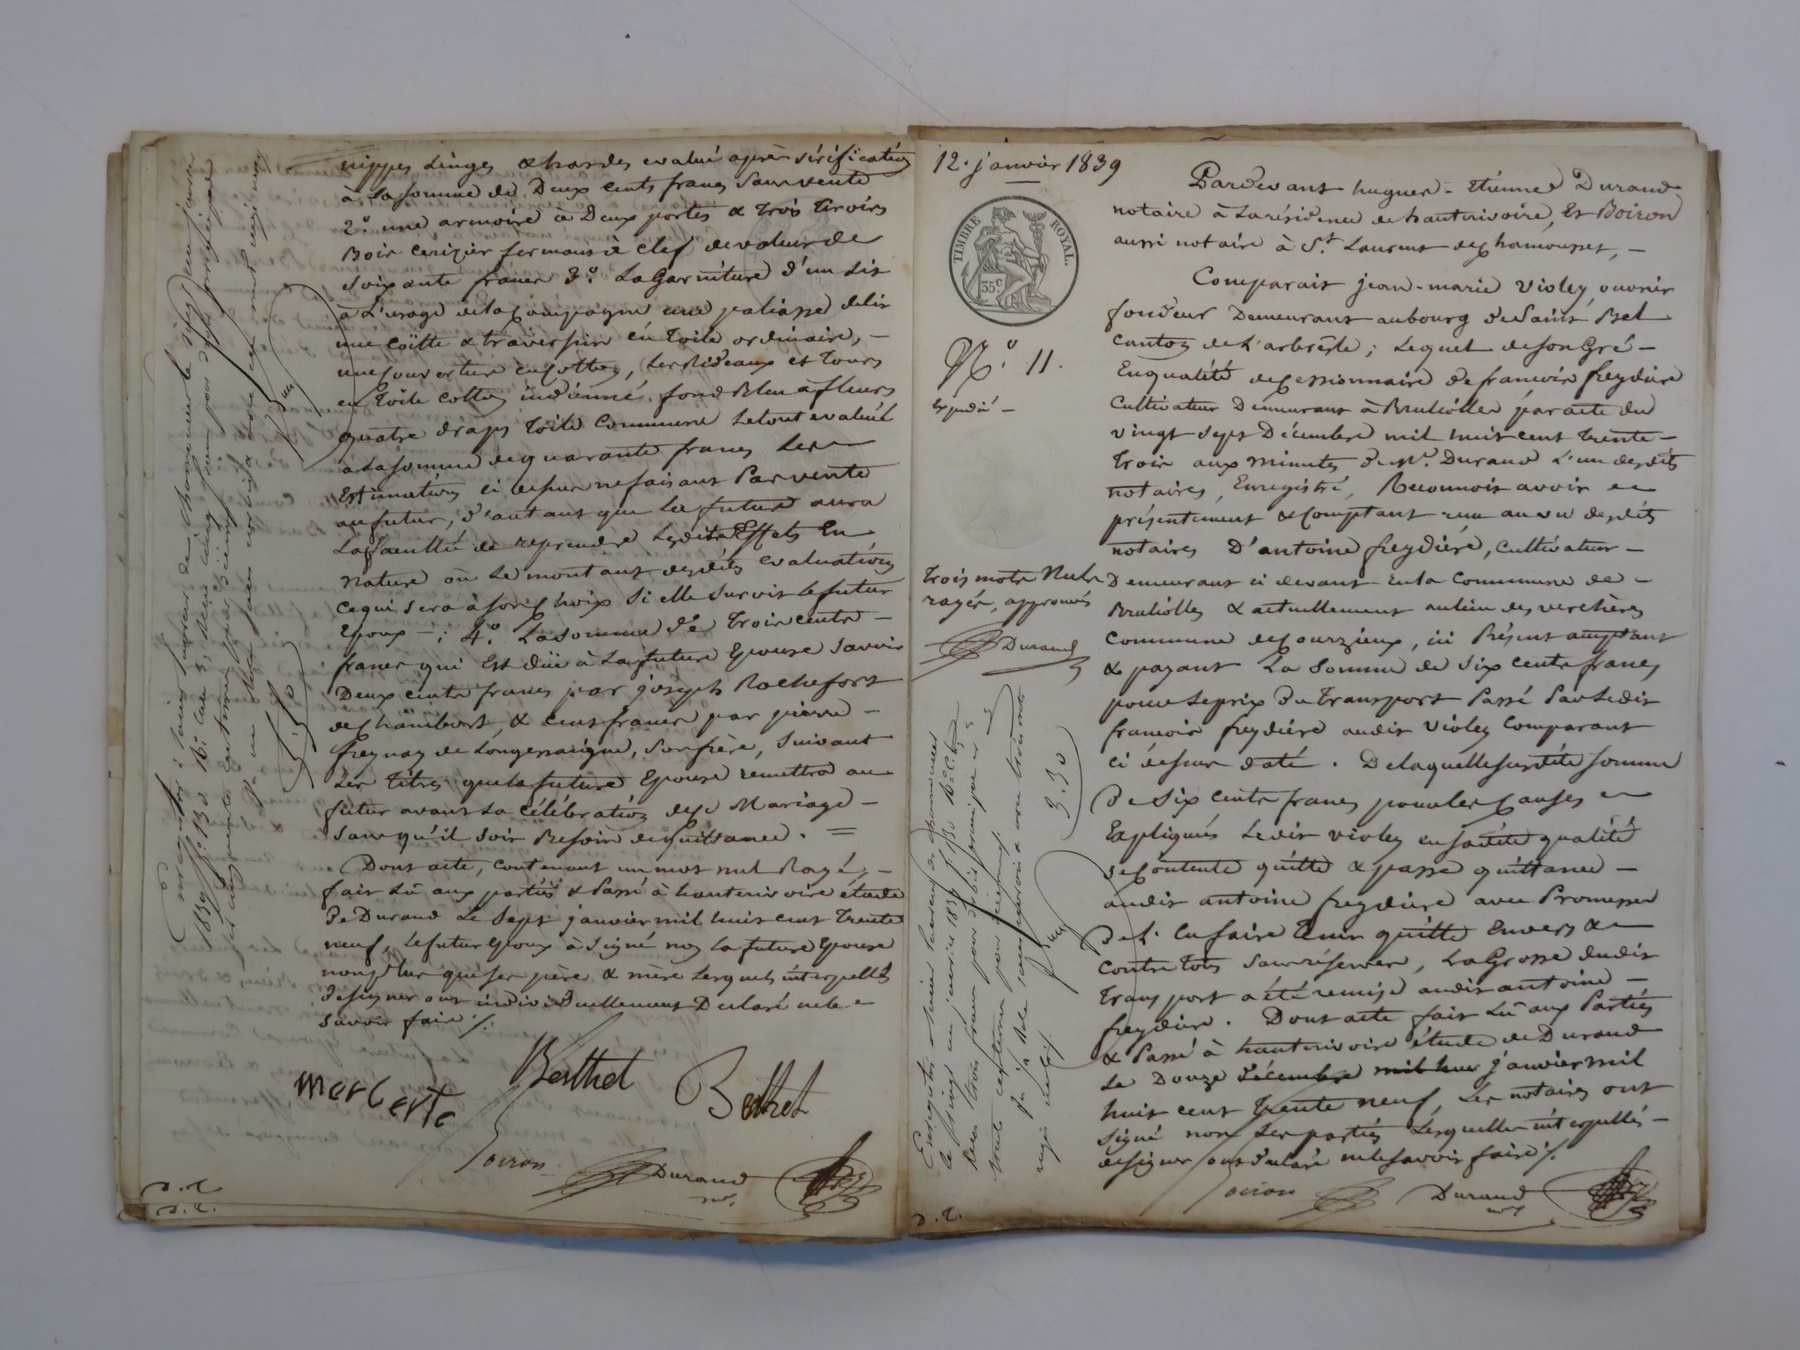 nippes Linges & hardes evalué après vérification
à la somme de Deux cents francs Sans vente
2.° une armoire à Deux portes & trois tiroirs
Bois cerizier fermant à clef de valeur de
soixante francs 3.° La Garniture d'un Lit
à L'usage de la Campagne une paliasse de lit
une Coïtte & traversin en toile ordinaire, —
une couverture en Cotton, Les Rideaux et tours
en toile Cotton indienné fond Bleu à fleurs
quatre draps toile Commune Le tout evalué
à la somme de quarante francs Les
Estimations ci dessus ne faisant Pas vente
au futur, d'autant que La future aura
La faculté de reprendre Lesdits Effets En
nature ou Le montant desdites evaluations
ce qui sera à son Choix si elle survit le futur
Epoux — ; 4.° La Somme de trois cents —
francs qui Est düe à La future Epouse Savoir
Deux cents francs par joseph Rochefort
de chambost & cent francs par pierre —
freynay de Longessaigne, Son frère, Suivant
Les titres que la future Epouse remettra au
futur avant La Célébration du Mariage —
Sans qu'il soit Besoin de quittance. =
Dont acte, contenant un mot nul Rayé, —
fait Lû aux parties & Passé à hauterivoire étude
De Durand Le Sept janvier mil huit cent trente
neuf, Le futur Epoux à signé non La future Epouse
non plus que ses père & mère Lesquels interpellés
De signer ont individuellement Déclaré ne le
savoir faire ./.
Berthet
Berthet
Boiron
Durand
n.re
D. D.
D. D.
12. janvier 1839
TIMBRE ROYAL.
35 c
N.° 11.
Expedié —
trois mots Nuls
rayés, approuvés
Durand
3.30
Pardevant hugues-Etienne Durand
notaire à La résidence de hauterivoire, Et Boiron
aussi notaire à S.t Laurent de chamousset, —
Comparait jean-marie Violey ouvrir
fondeur Demeurant au bourg de Saint Bel
Canton de L'arbresle ; Lequel de son Gré —
En qualité de Cessionnaire de francois freydière
Cultivateur Demeurant à Brulioles par acte du
vingt sept Décembre mil huit cent trente-
trois aux minutes de M.e Durand L'un desdits
notaires, Enregistré, Reconnoit avoir
présentement & Comptant reçu au vu desdits
notaires D'antoine freydière, Cultivateur —
Demeurant ci devant En la Commune de —
Brulioles & actuellement au lieu des verchères
Commune de Courzieux, ici Présent acceptant
& payant La Somme de six cents francs
pour Le prix Du transport Passé Par Ledit
francois freydière audit Violey Comparant
ci dessus daté. De laquelle susdite somme
De six cents francs pour les Causes
Expliquées Ledit Violey en sadite qualité
se Contente quitte & passe quittance —
audit antoine freydière avec Promesse
De L'en faire tenir quitte Envers &
Contre tous Sans réserves, La Grosse dudit
transport a été remise audit antoine —
freydière. Dont acte fait Lû aux Parties
& Passé à hauterivoire étude de Durand
Le Douze décembre mil huit janvier mil
huit cent trente neuf, Les notaires ont
signé non Les parties Lesquelles interpellés —
de signer ont déclaré ne le savoir faire ./.
Boiron
Durand
n.re
D. D.